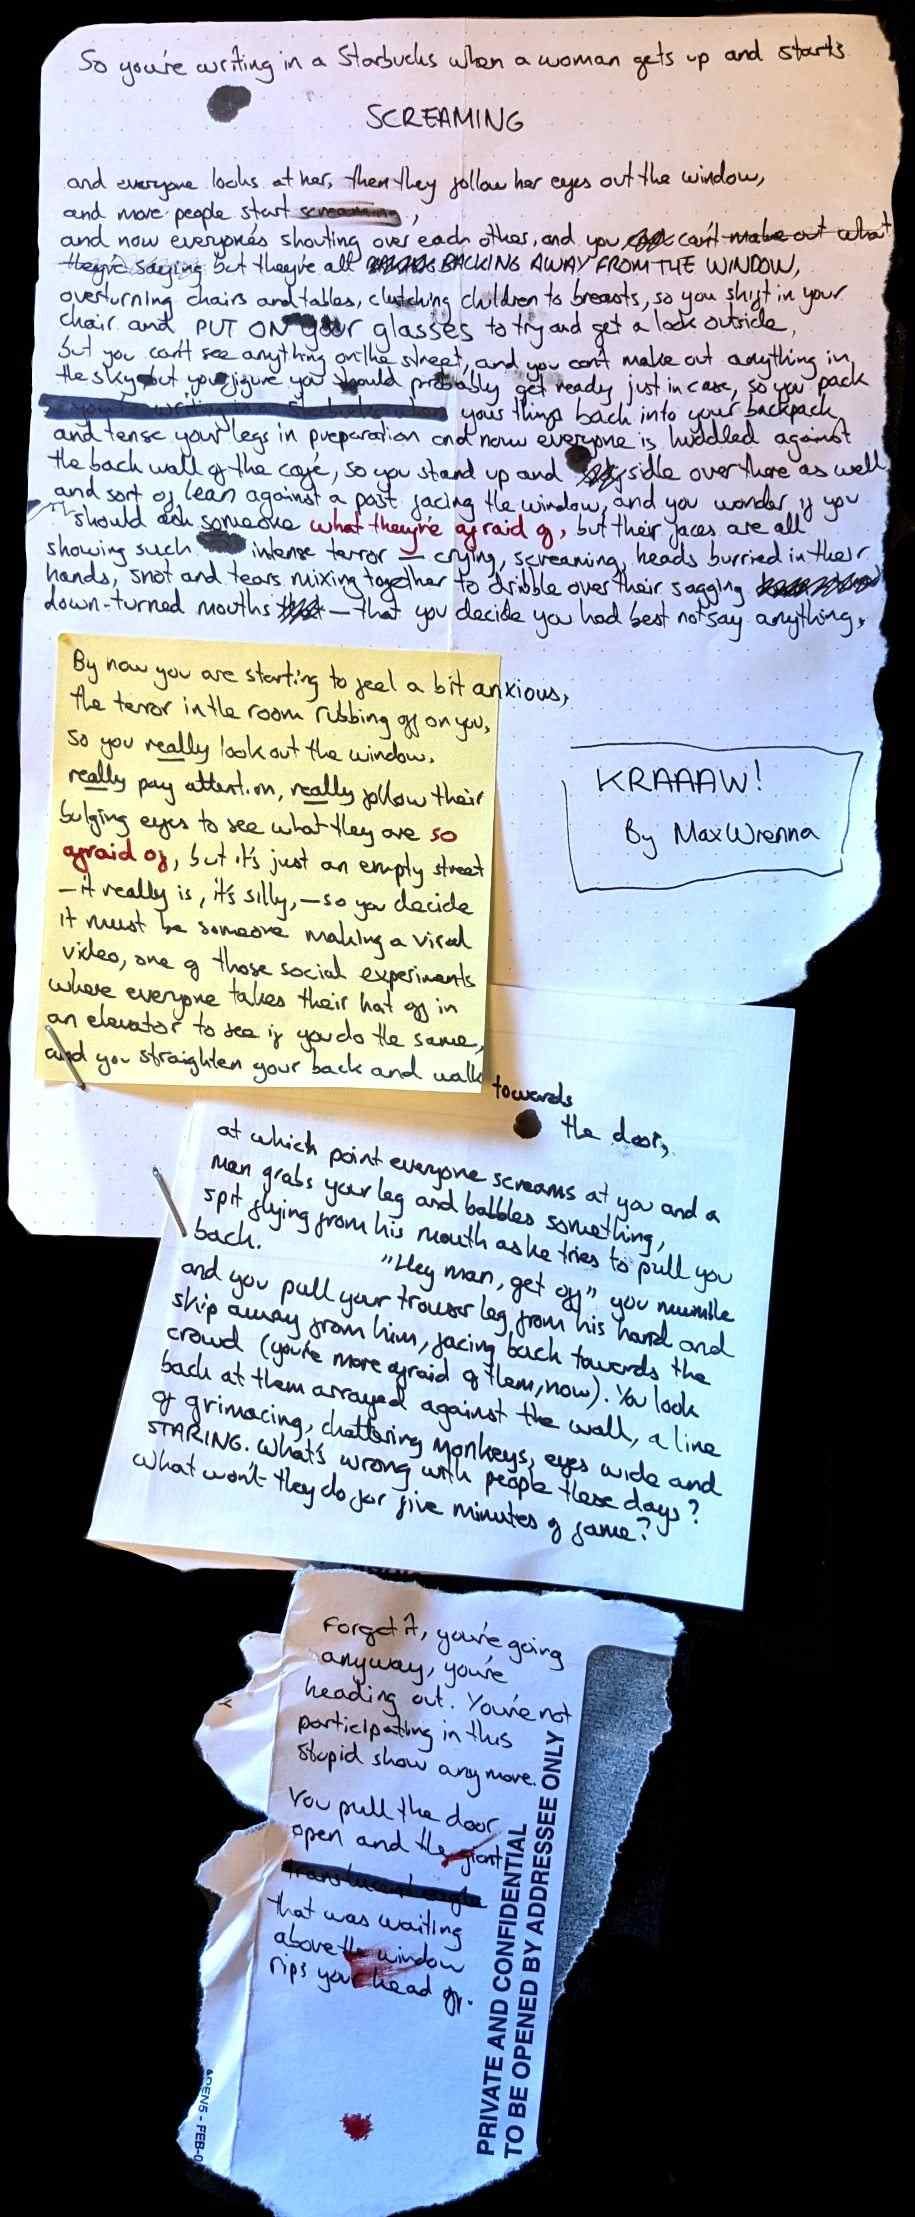 So you're writing in a Starbucks when a woman gets up and starts
SCREAMING
and everyone looks at her, then they follow her eyes out the window,
and more people start screaming,
and now everyone's shouting over each other, and you can't make out what
they're saying but they're all BACKING AWAY FROM THE WINDOW,
overturning chairs and tables, clutching children to breasts, so you shift in your
chair and PUT ON your glasses to try and get a look outside,
but you can't see anything on the street, and you can't make out anything in
the sky but you figure you should probably get ready just in case, so you pack
your things back into your backpack
and tense your legs in preparation and now everyone is huddled against
the back wall of the café, so you stand up and sidle over there as well
and sort of lean against a post facing the window, and you wonder if you
should ask someone what they're afraid of, but their faces are all
showing such intense terror — crying, screaming, heads burried in their
hands, snot and tears mixing together to dribble over their sagging
down-turned mouths — that you decide you had best not say anything.
By now you are starting to feel a bit anxious,
the terror in the room rubbing off on you,
so you really look out the window.
really pay attention, really follow their
bulging eyes to see what they are so
afraid of, but it's just an empty street
— it really is, it's silly, — so you decide
it must be someone making a viral
video, one of those social experiments
where everyone takes their hat off in
an elevator to see if you do the same,
and you straighten your back and walk
towards
the door,
KRAAAW!
By Max Wrenna
at which point everyone screams at you and a
man grabs your leg and babbles something,
spit flying from his mouth as he tries to pull you
back.
"Hey man, get off" you mumble
and you pull your trouser leg from his hand and
skip away from him, facing back towards the
crowd (you're more afraid of them, now). You look
back at them arrayed against the wall, a line
of grimacing, chattering monkeys, eyes wide and
STARING. What's wrong with people these days?
What won't they do for five minutes of fame?
Forget it, you're going
anyway, you're
heading out. You're not
participating in this
stupid show anymore.
You pull the door
open and the giant
that was waiting
above the window
rips your head off.
PRIVATE AND CONFIDENTIAL
TO BE OPENED BY ADDRESSEE ONLY